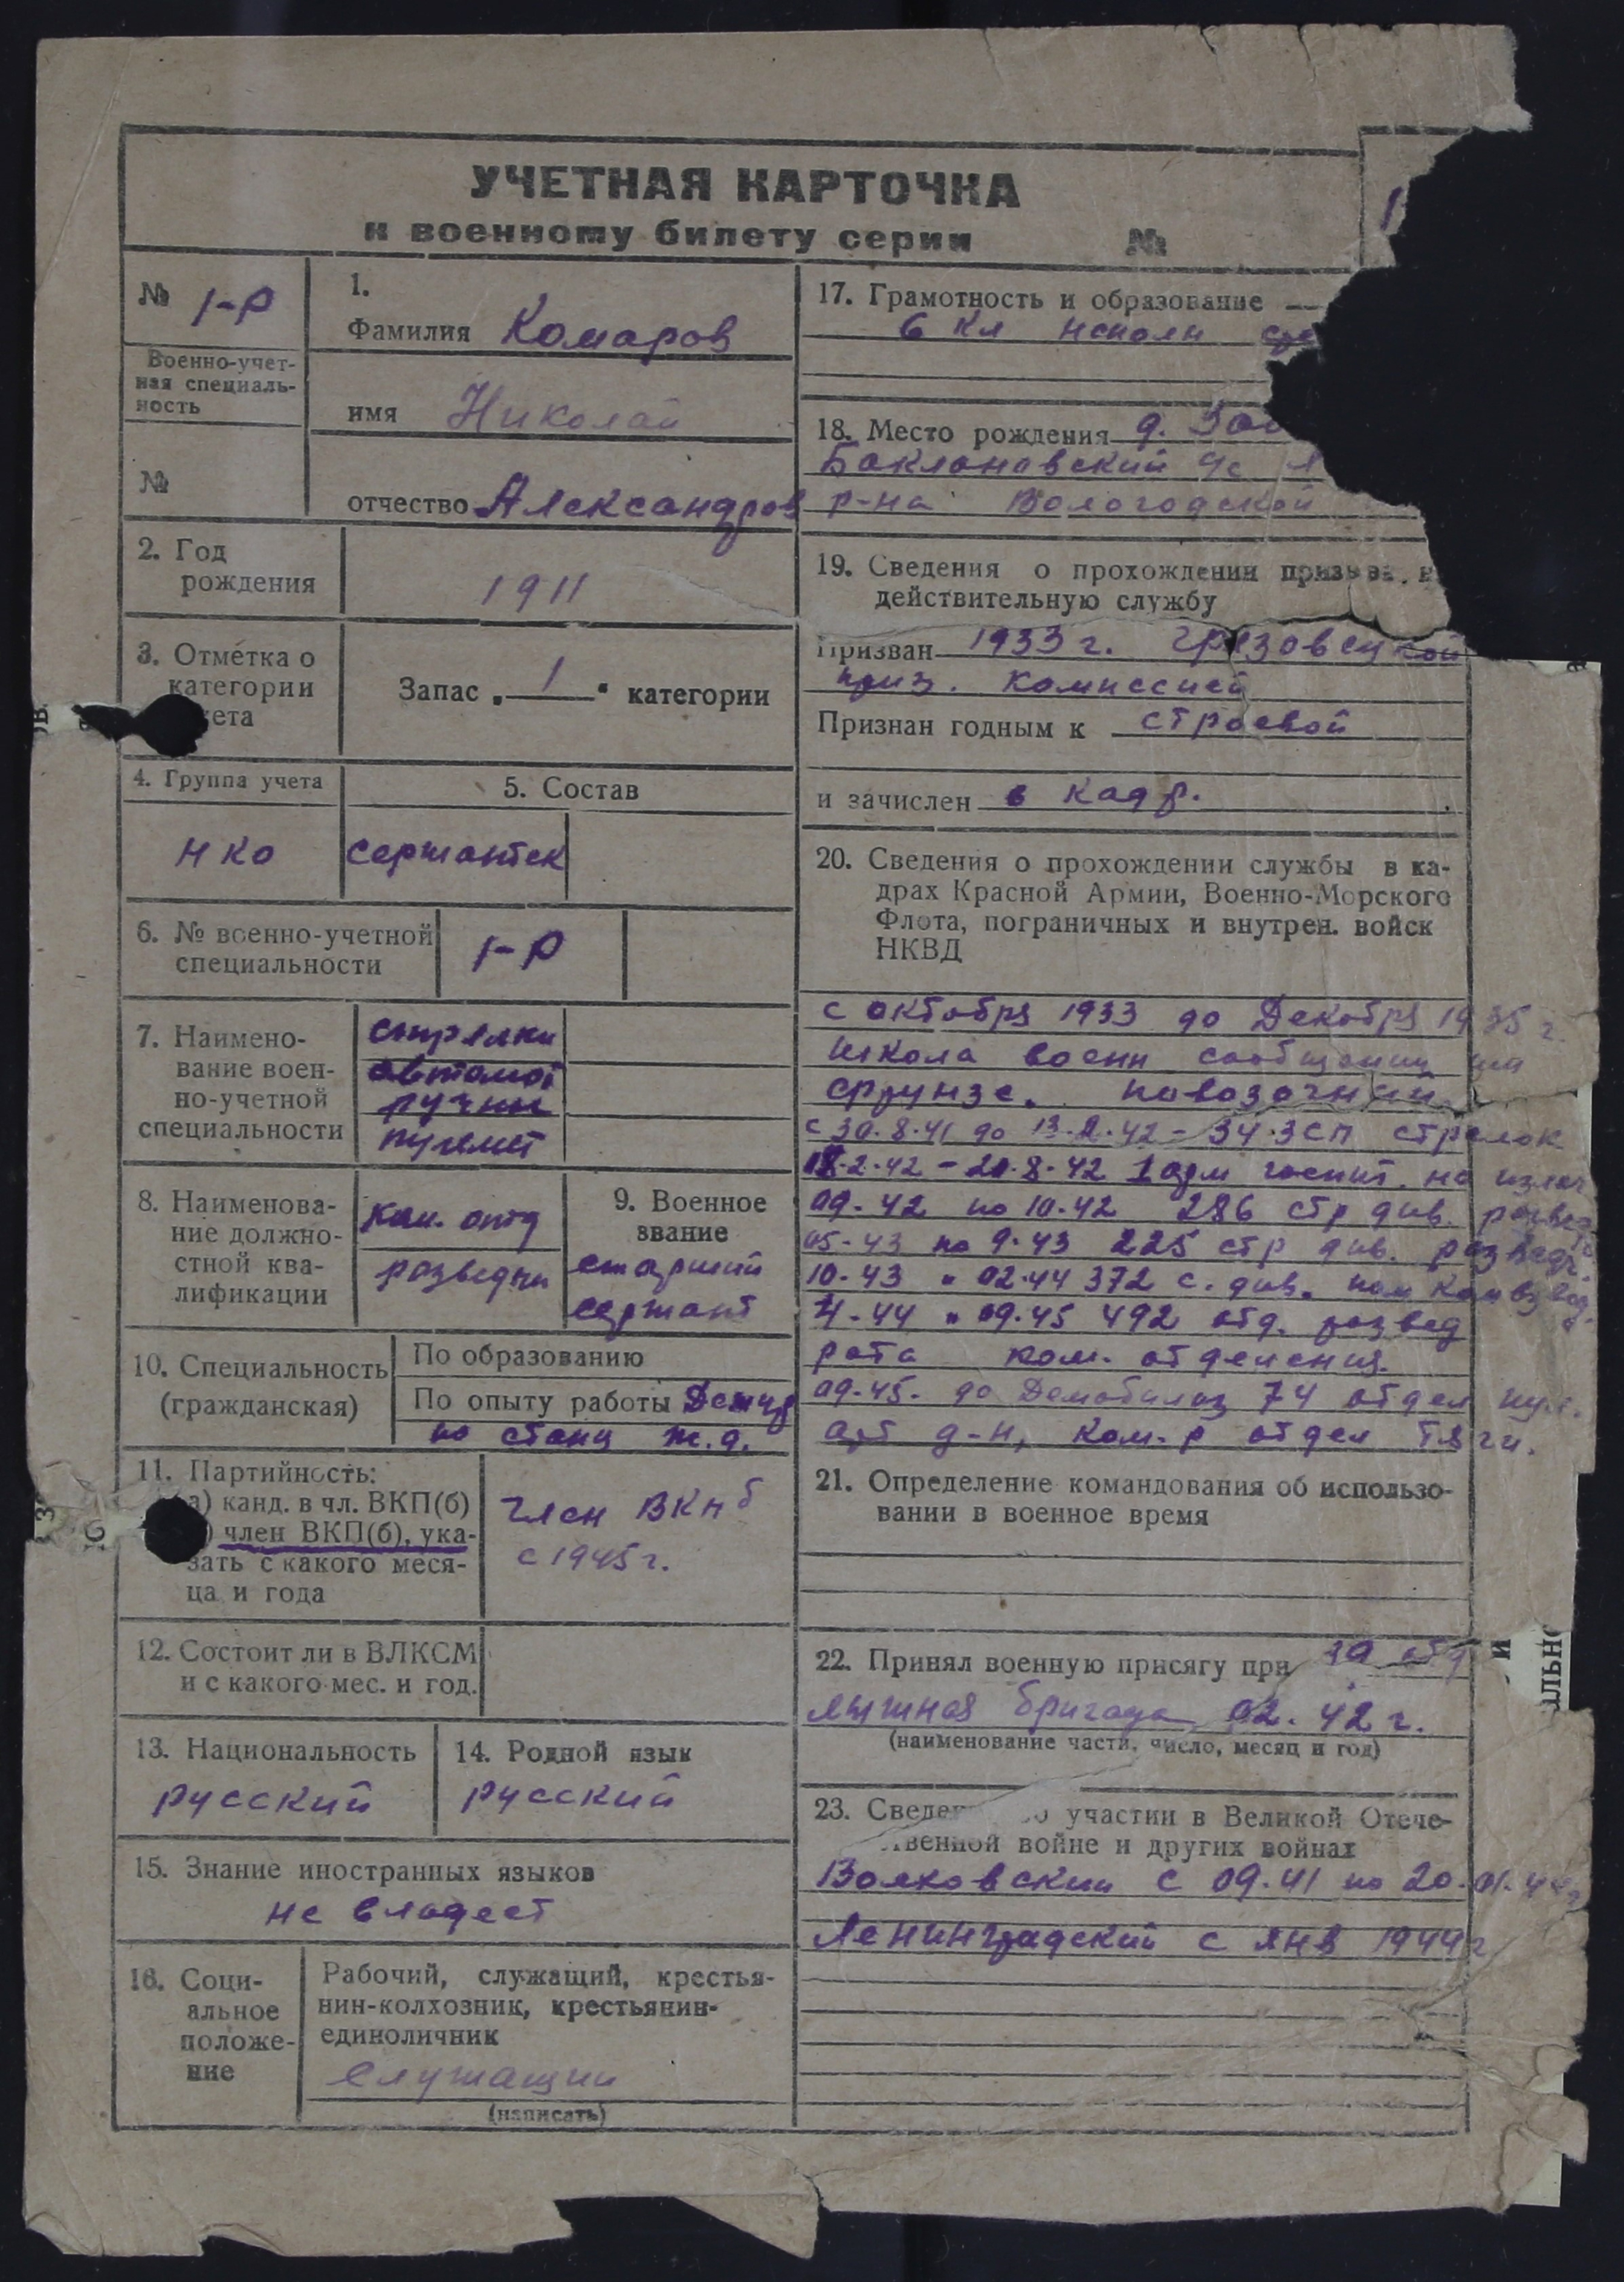 УЧЕТНАЯ КАРТОЧКА
к военному билету серии №
№ 1-Р
Военно-учет-
ная специаль-
ность
№
1.
Фамилия Комаров
имя Николай
отчество Александров
2. Год
рождения
1911
3. Отметка о
категории
Запас „ 1 “ категории
4. Группа учета
НКО
5. Состав
сержантск
6. № военно-учетной
специальности
1-Р
7. Наимено-
вание воен-
но-учетной
специальности
стрелки
автомат
ручны
пулемет
8. Наименова-
ние должно-
стной ква-
лификации
ком. отд
разведчи
9. Военное
звание
старший
сержант
10. Специальность
(гражданская)
По образованию
По опыту работы Дежур
по станц ж.д.
11. Партийность:
а) канд. в чл. ВКП(б)
) член ВКП(б), ука-
зать с какого меся-
ца и года
член ВКП б
с 1945 г.
12. Состоит ли в ВЛКСМ
и с какого мес. и год.
13. Национальность
русский
14. Родной язык
русский
15. Знание иностранных языков
не владеет
16. Соци-
альное
положе-
ние
Рабочий, служащий, крестья-
нин-колхозник, крестьянин-
единоличник
служащий
(написать)
17. Грамотность и образование
6 кл неполн
18. Место рождения д.
Баклановский с/с
р-на Вологодской
19. Сведения о прохождении призыва
действительную службу
Призван 1933 г. Грязовецкой
приз. комиссией
Признан годным к строевой
и зачислен в кадр.
20. Сведения о прохождении службы в ка-
драх Красной Армии, Военно-Морского
Флота, пограничных и внутрен. войск
НКВД
с октября 1933 до Декабря 1935 г.
школа военн сообщении им
Фрунзе. повозочный.
с 30.8.41 до 13.2.42 - 34.ЗСП стрелок
2.42 - 20.8.42 госпит. на излеч
09-42 по 10-42 286 стр див. развед
05-43 по 9-43 225 стр див. разведч.
10-43 " 02-44 372 с. див. пом ком взвод.
4-44 " 09-45 492 отд. развед
рота ком. отделения.
09-45. до Демобилиз 74 отдел пул.
арт д-н, ком-р отдел тяги.
21. Определение командования об использо-
вании в военное время
22. Принял военную присягу при 39 отд
лыжная бригада 02. 42 г.
(наименование части, число, месяц и год)
23. Сведе участии в Великой Отече-
твенной войне и других войнах
Волховский с 09.41 по 20.01.44 г
Ленинградский с янв 1944 г